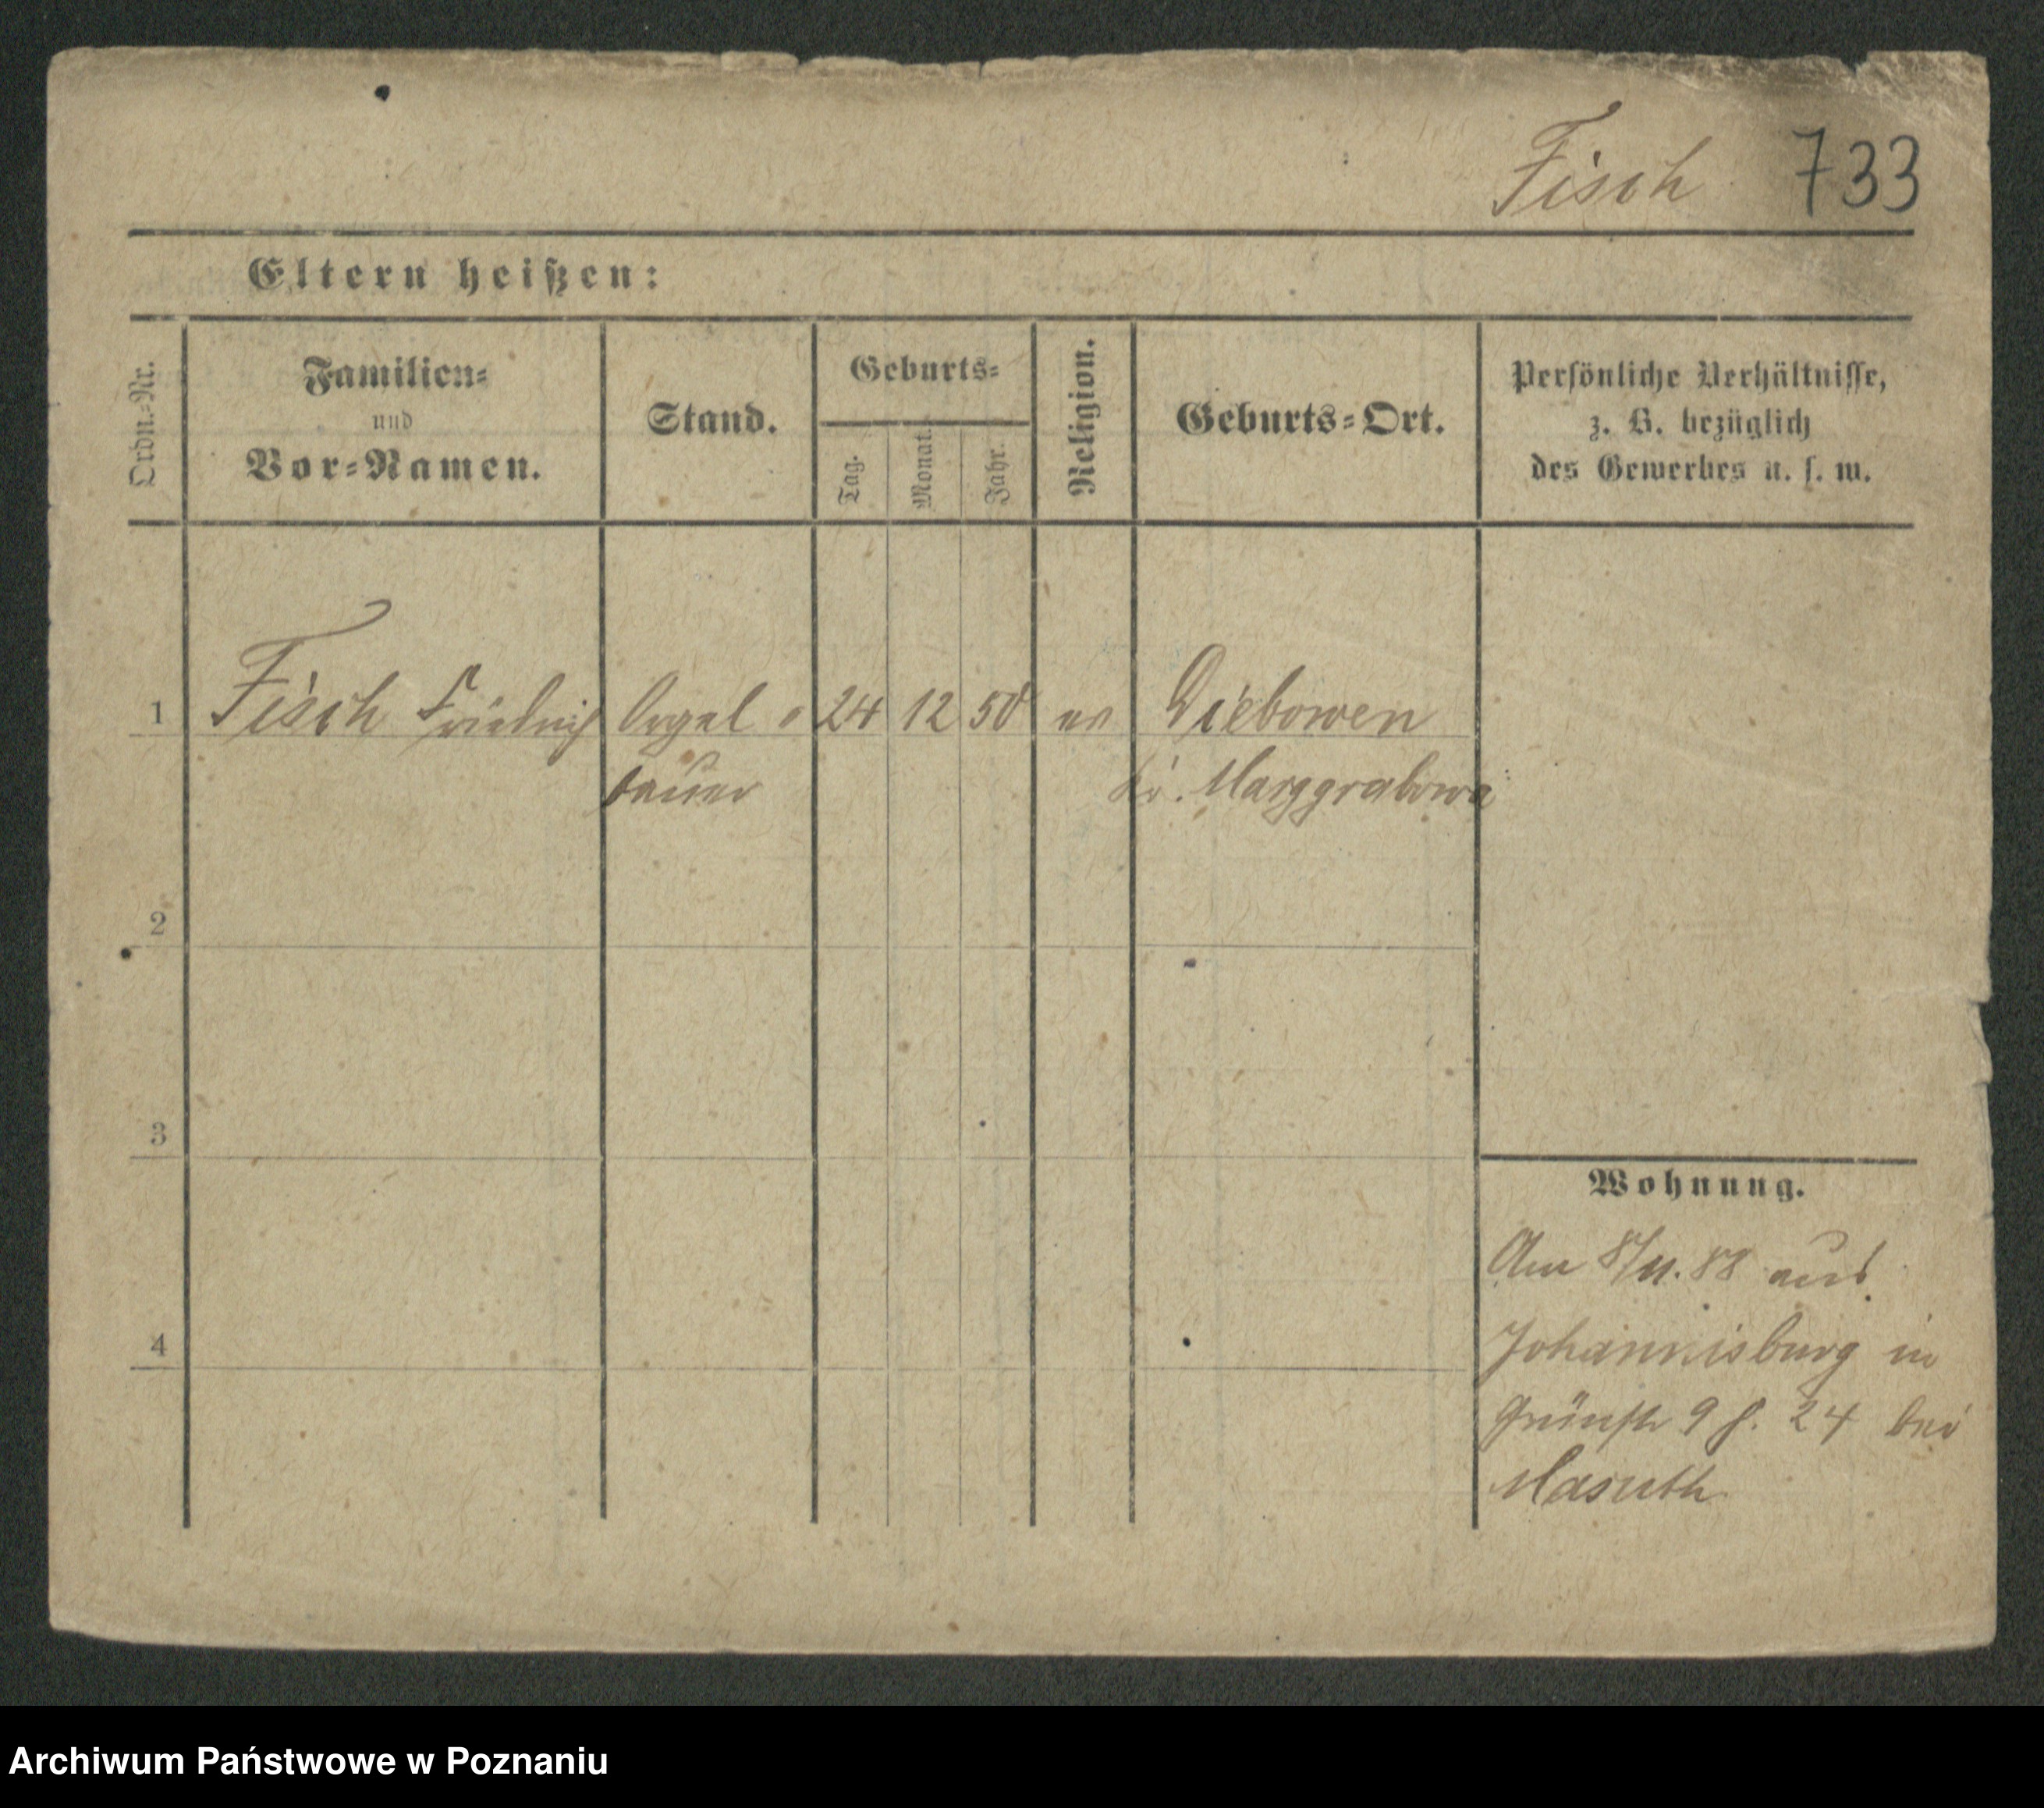 Fisch 733
Eltern heißen:
Ordn.-Nr.
Familien-
und
Vor-Namen.
Stand.
Geburts-
Tag.
Monat.
Jahr.
Religion.
Geburts-Ort.
Persönliche Verhältnisse,
z. B. bezüglich
des Gewerbes u. s. w.
1 Fisch Friedrich Orgel- 24 12 58 ev Diebowen
bauer Kr. Marggrabowa
2
3
4
Wohnung.
Am 8/11. 88 aus
Johannisburg in
Grünstr 9 f. 24 bei
Masuth
Archiwum Państwowe w Poznaniu